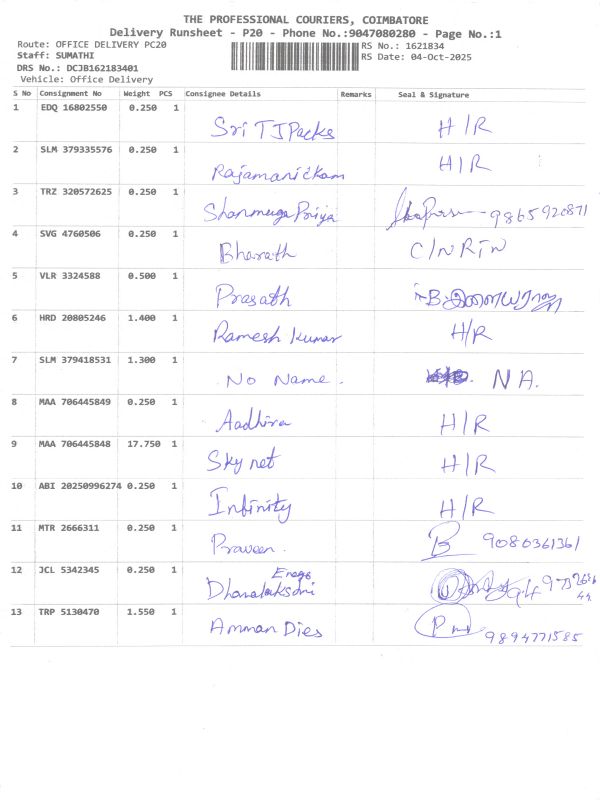 THE PROFESSIONAL COURIERS, COIMBATORE
Delivery Runsheet - P20 - Phone No.:9047080280 - Page No.:1
Route: OFFICE DELIVERY PC20 RS No.: 1621834
Staff: SUMATHI RS Date: 04-Oct-2025
DRS No.: DCJB162183401
Vehicle: Office Delivery
S No Consignment No Weight PCS Consignee Details Remarks Seal & Signature
1 EDQ 16802550 0.250 1 Sri TJ Packs H/R
2 SLM 379335576 0.250 1 Rajamanickam H/R
3 TRZ 320572625 0.250 1 Shanmuga Priya 9865920871
4 SVG 4760506 0.250 1 Bharath C/N RTN
5 VLR 3324588 0.500 1 Prasath
6 HRD 20805246 1.400 1 Ramesh Kumar H/R
7 SLM 379418531 1.300 1 No Name. NA.
8 MAA 706445849 0.250 1 Aadhira H/R
9 MAA 706445848 17.750 1 Sky net H/R
10 ABI 20250996274 0.250 1 Infinity H/R
11 MTR 2666311 0.250 1 Praveen. 9080361361
12 JCL 5342345 0.250 1
13 TRP 5130470 1.550 1 Amman Dies 9894771585